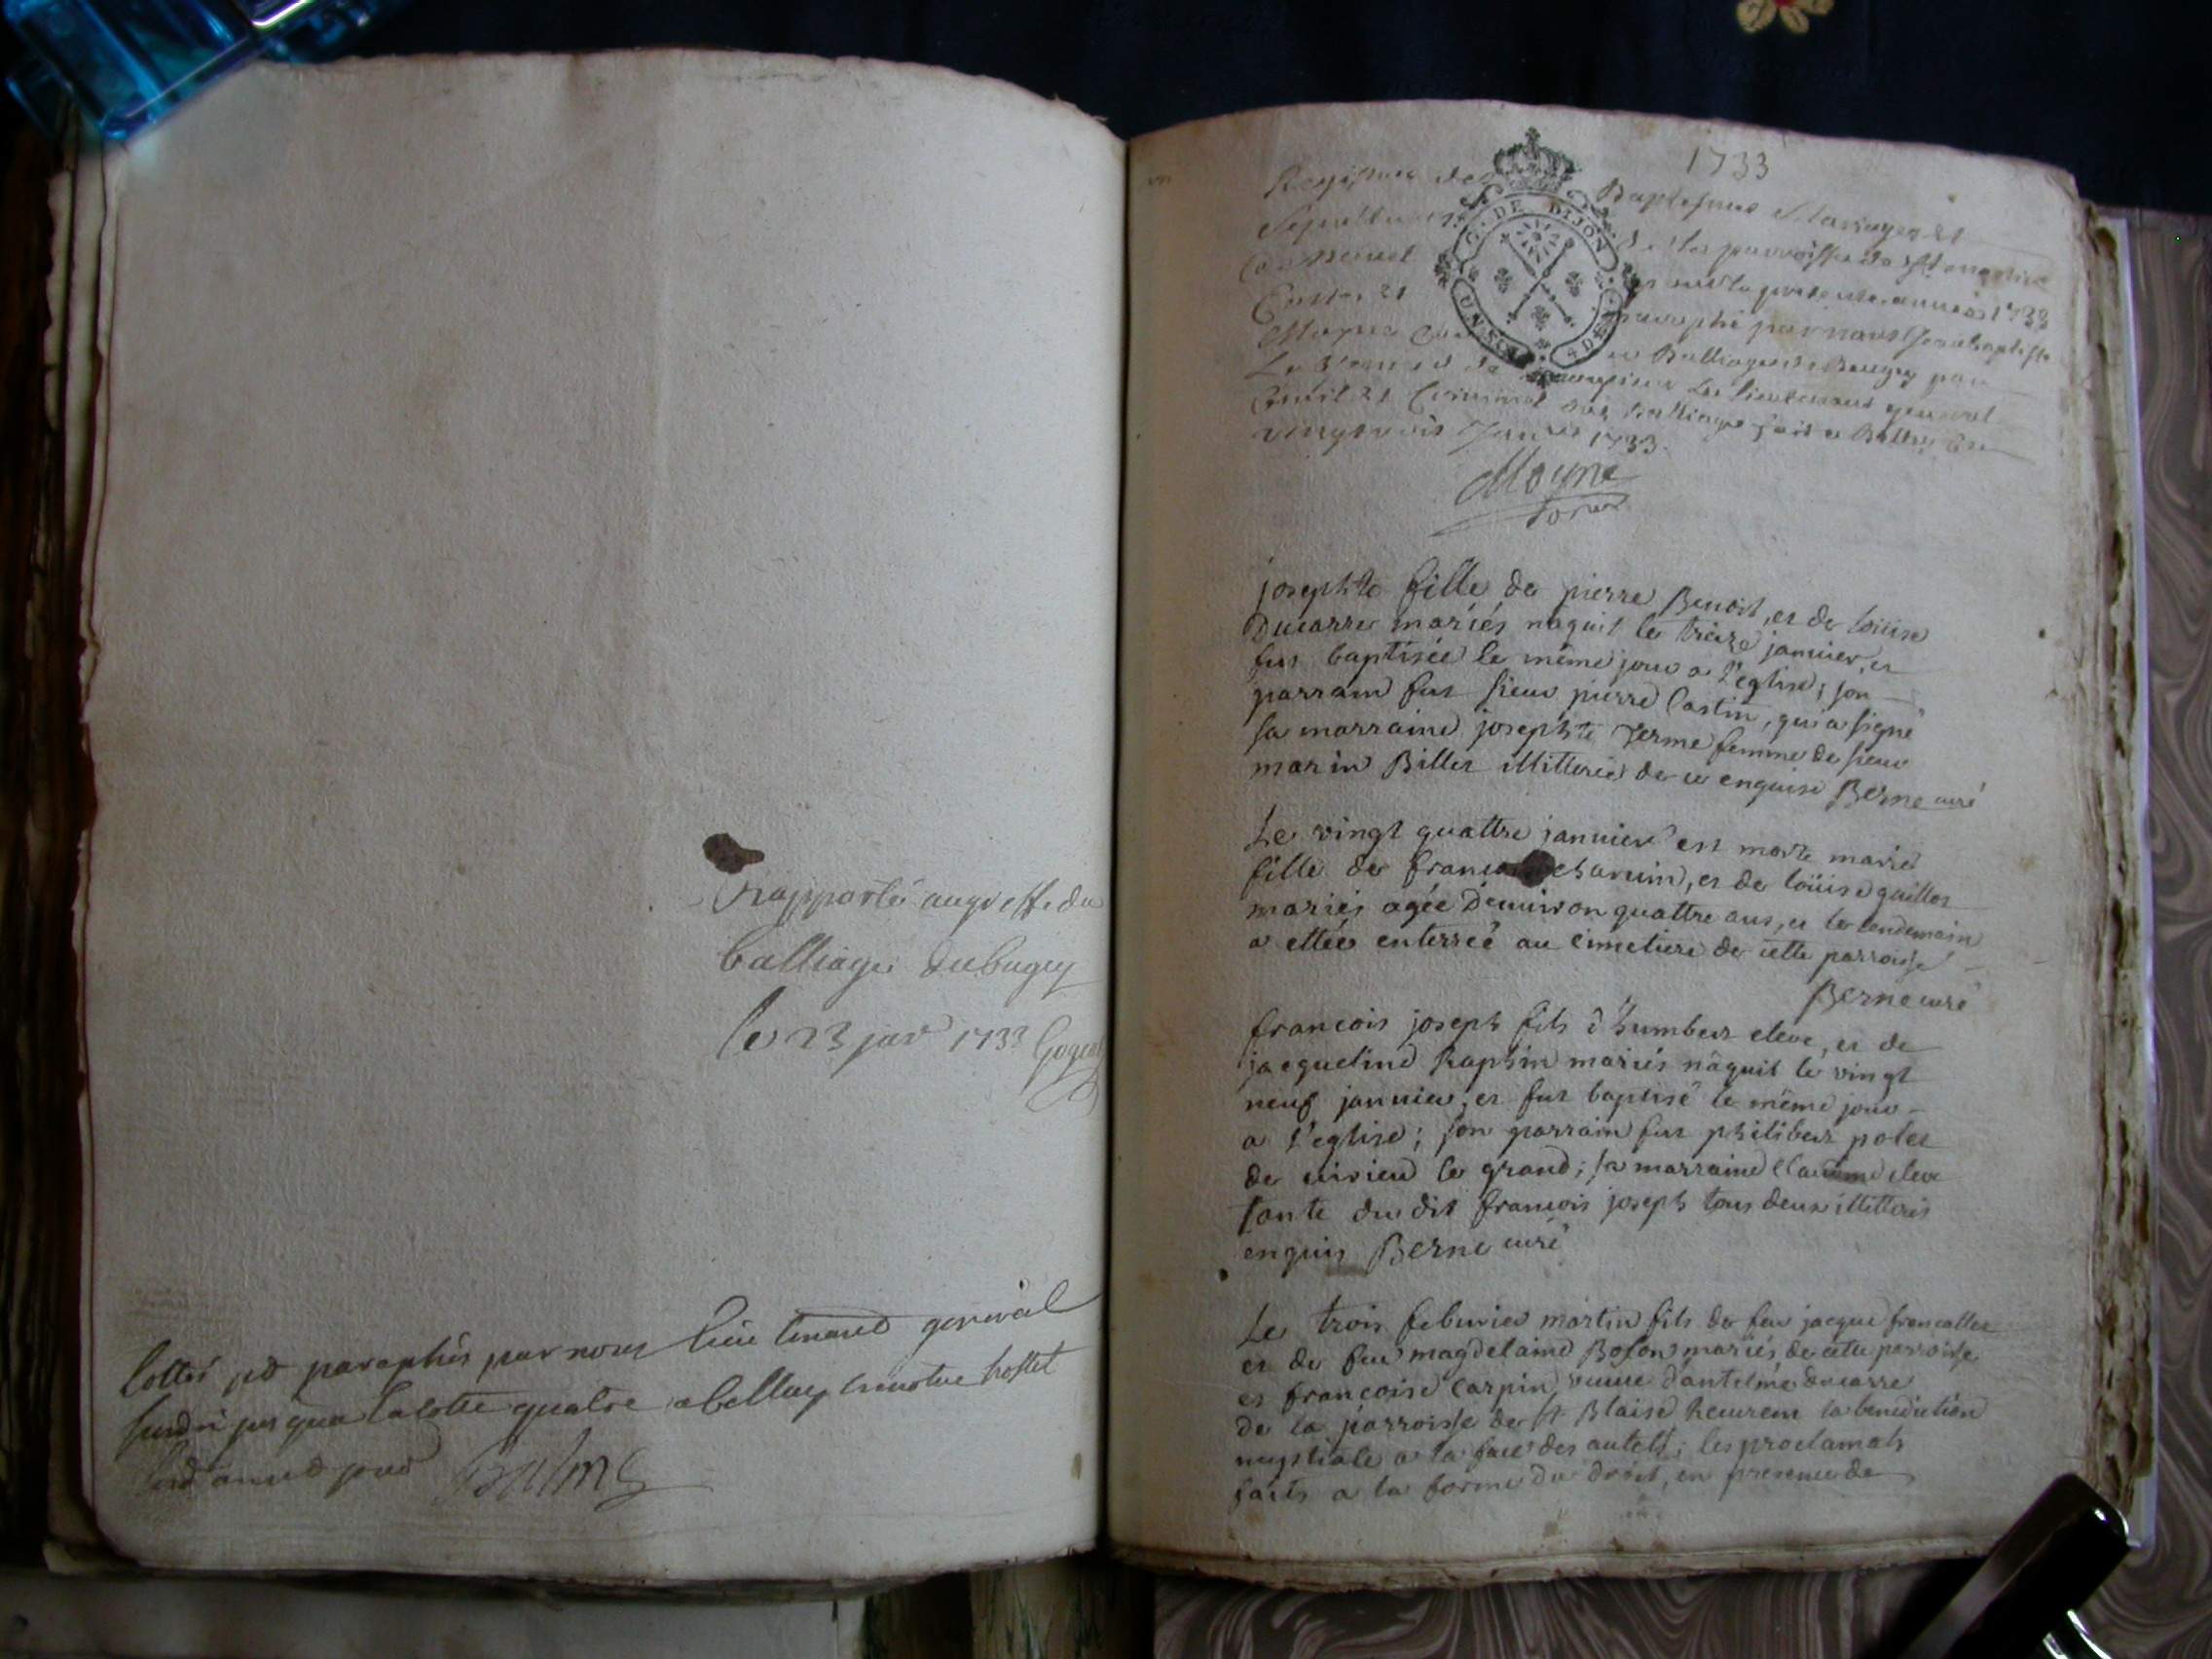 rapporté au greffe du
balliage du bugey
le 23 janr 1733
cottés et paraphés par nous lieutenand general
jusqua la cotte quatre a belley hostel
1733
Registre des Baptesmes Mariages et
Sepultures de la parroisse de
pour la presente année 1733
paraphé par nous Jean baptiste
Moyne
Balliage de Beugey par
Le lieutenant general
Civil et Criminel aud balliage fait a Belley Ce
vingt trois Janvier 1733
Moyne
G. DE DIJON
UN SOL
josephte fille de pierre Benoit, et de loüise
Ducarre mariés naquit le treize janvier, et
fut baptisée le même jour a l'eglise; son
parrain fut sieur pierre Castin, qui a signé
sa marraine josephte Jerme femme de sieur
marin Billet illitterée de ce enquise Berne curé
Le vingt quattre janvier est morte marie
fille de charvin, et de loüise
mariés agée d'environ quattre ans, et le lendemain
a ettée enterrée au cimetiere de cette parroisse
Berne curé
francois joseph fils d'humbert eleve, et de
jacqueline Raphin mariés nâquit le vingt
neuf janvier, et fut baptisé le même jour
a l'eglise; son parrain fut philibert polet
de virieu le grand; sa marraine eleve
tante du dit francois joseph tous deux illitterés
enquis Berne curé
Le trois feburier martin fils de feu jacque francallet
et de feue magdelaine Boson mariés de cette parroisse
et francoise Carpin veuve d'antelme ducarre
de la parroisse de St Blaise heurent la benediction
nuptiale a la face des autels; les proclamats
faits a la forme du droit, en presence de